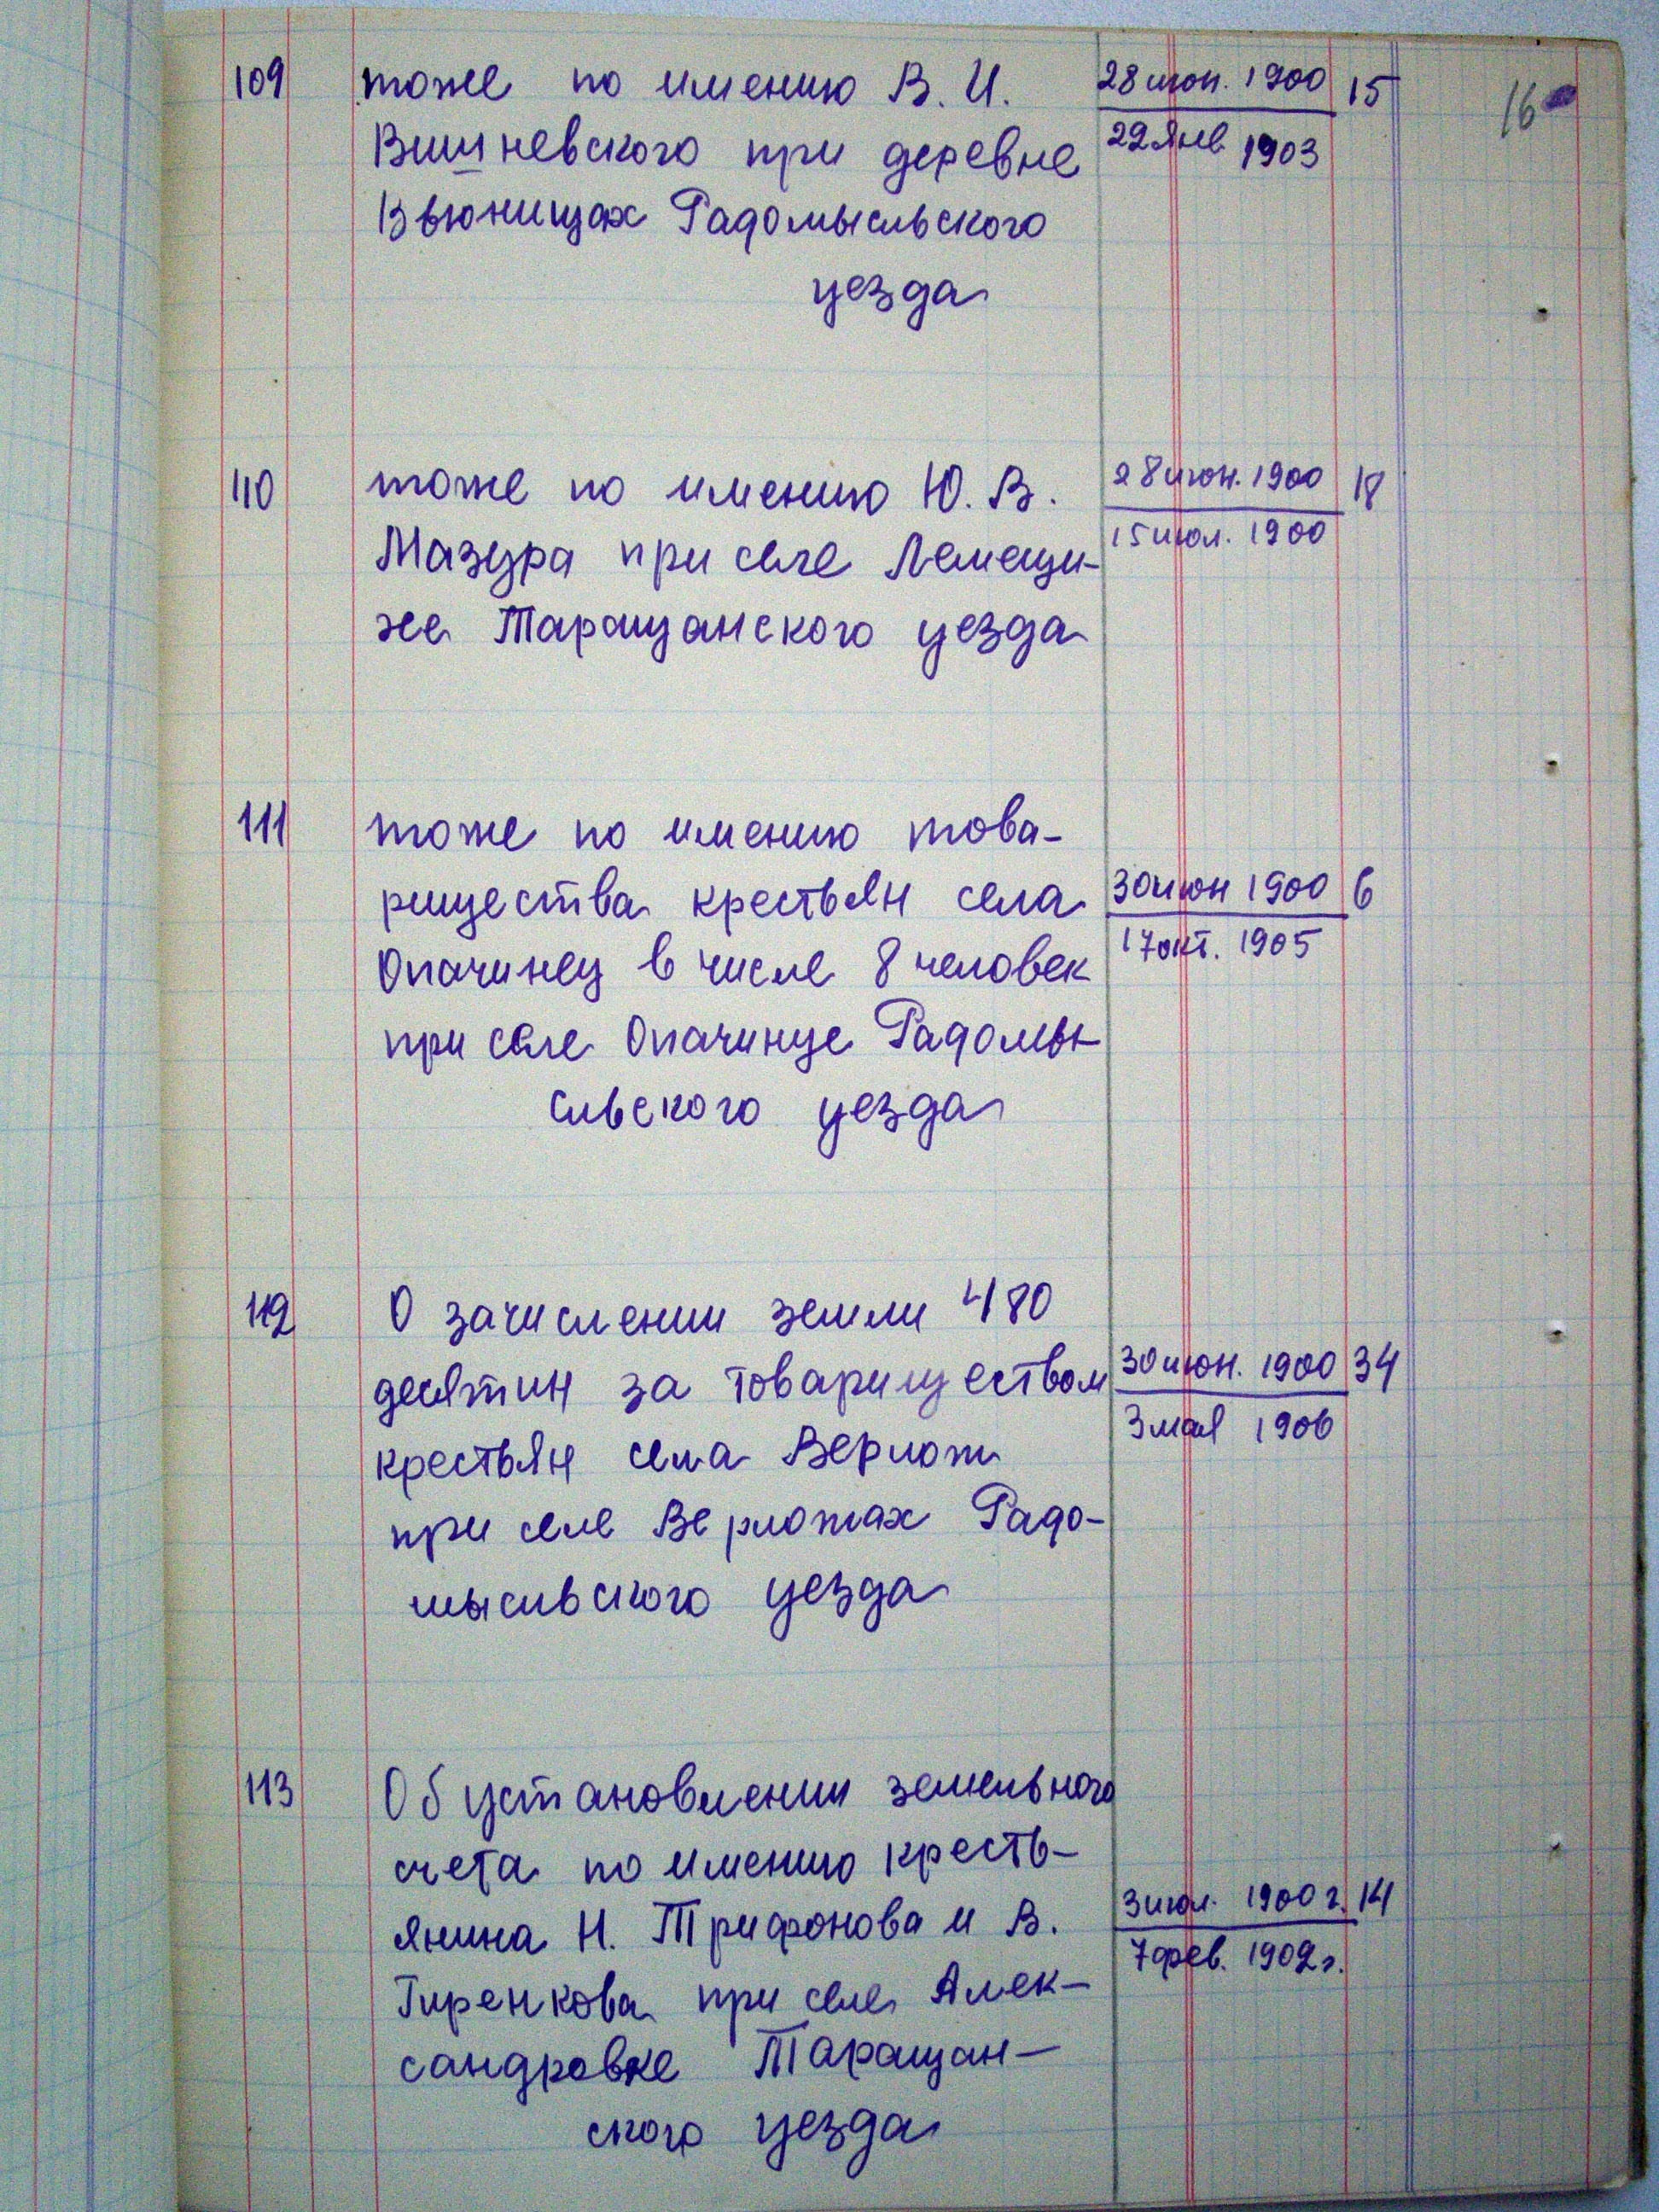 16
109 тоже по имению В. И. 28 июн. 1900 15
Вишневского при деревне 22 янв 1903
Вьюнищах Радомысльского
уезда
110 тоже по имению Ю. В. 28 июн. 1900 18
Мазура при селе Лемещи- 15 июл. 1900
хе Таращанского уезда
111 тоже по имению това-
рищества крестьян села 30 июн 1900 6
Опачинец в числе 8 человек 17 окт. 1905
при селе Опачинце Радомы-
сльского уезда
112 О зачислении земли 480
десятин за товариществом 30 июн. 1900 34
крестьян села Верлок 3 мая 1906
при селе Верлоках Радо-
мысльского уезда
113 Об установлении земельного
счета по имению кресть-
янина Н. Трифонова и В. 3 июл. 1900 г. 14
Гиренкова при селе Алек- 7 фев. 1902 г.
сандровке Таращан-
ского уезда